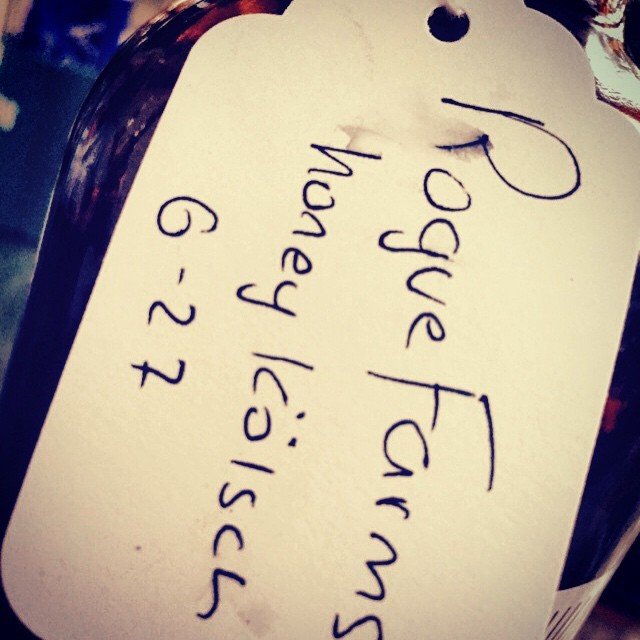 Rogue Farms
honey Kölsch
6-27